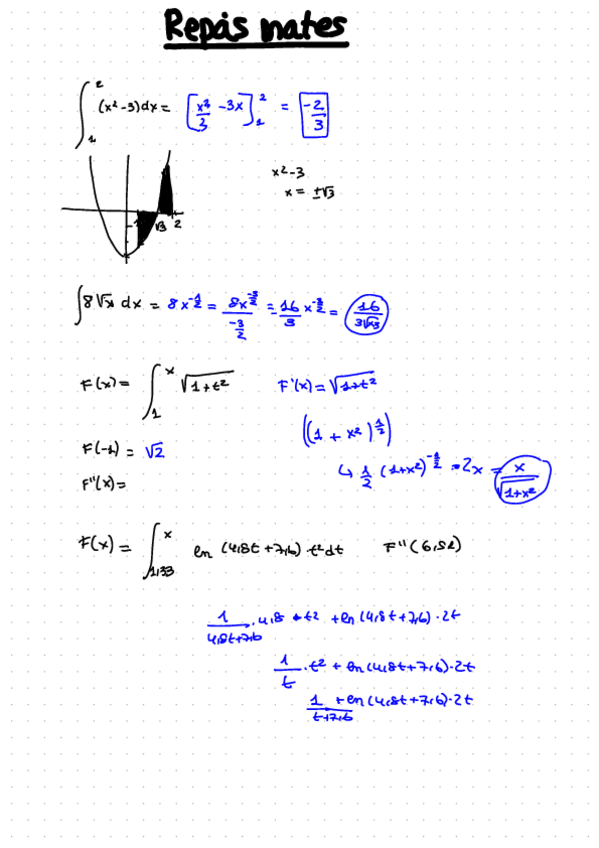 Repàs mates
∫₁² (x²-3)dx = [x³/3 - 3x]₁² = -2/3
x²-3
x = ±√3
-1 √3 2
∫8√x dx = 8x^(-1/2) = 8x^(-3/2)/(-3/2) = -16/3 x^(-3/2) = 16/(3√x3)
F(x) = ∫₁ˣ √(1+t²) F'(x) = √(1+t²)
((1 + x²)^(1/2))
F(-1) = √2
↳ 1/2 (1+x²)^(-1/2) · 2x = x/√(1+x²)
F''(x) =
F(x) = ∫_(1,33)^x ln (4,8t+7,6) t²dt F''(6,52)
1/(4,8t+7,6) · 4,8 · t² + ln (4,8t+7,6) · 2t
1/t · t² + ln (4,8t+7,6) · 2t
1/(t+7,6) + ln (4,8t+7,6) · 2t